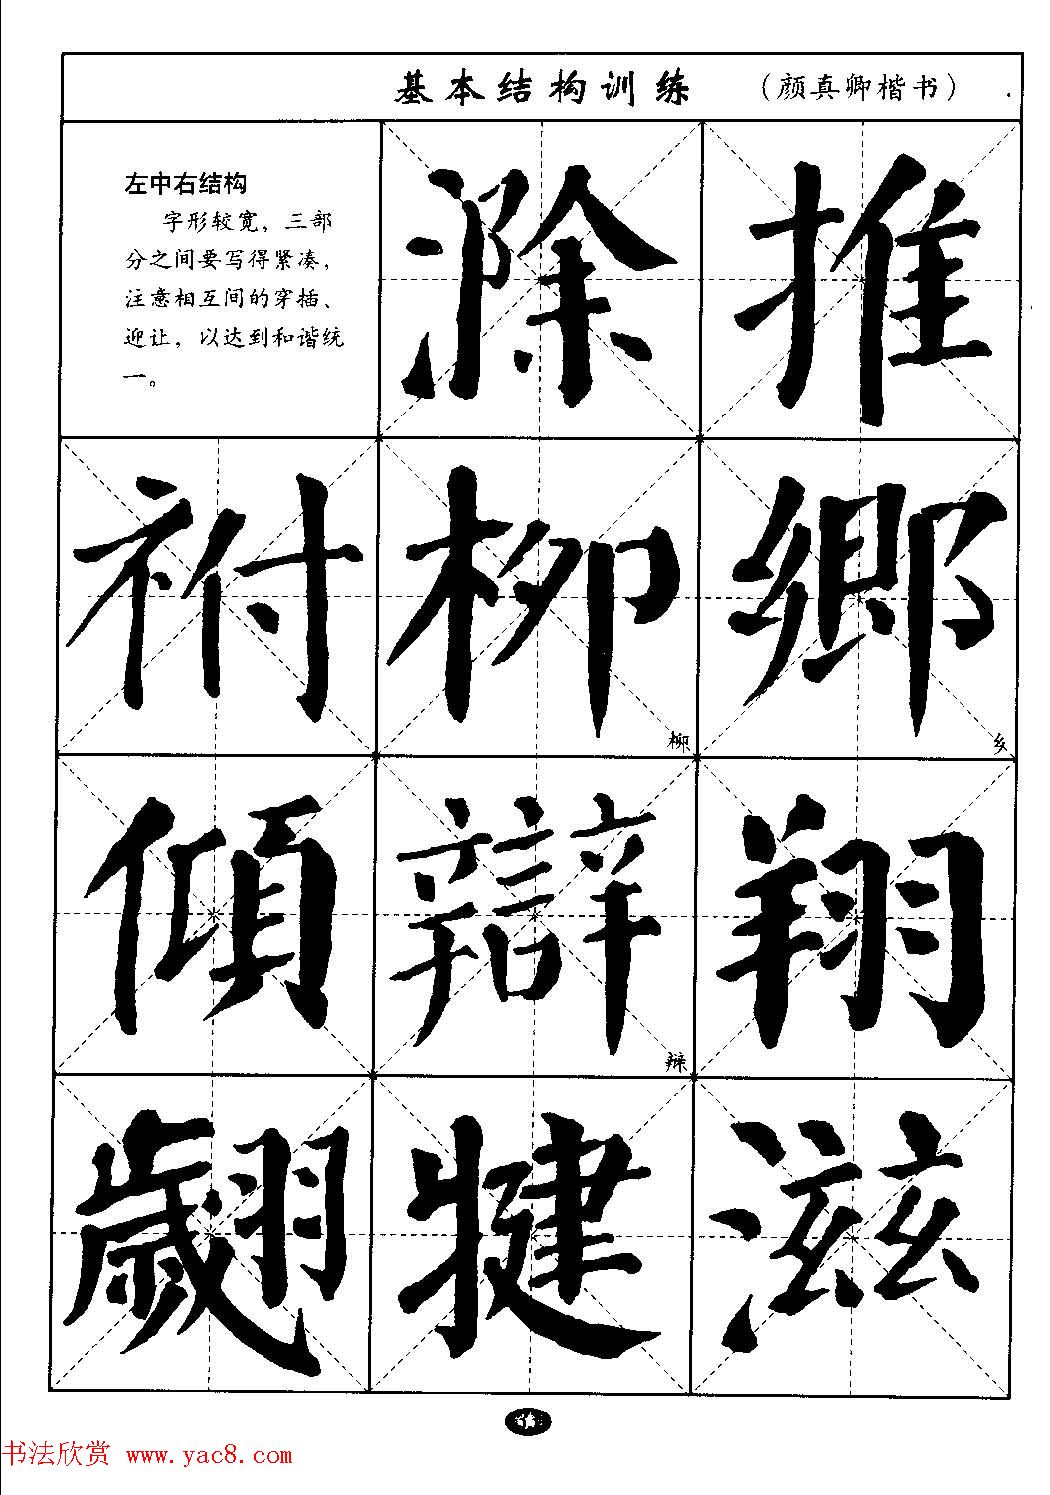 基本结构训练 （颜真卿楷书）
左中右结构
字形较宽，三部
分之间要写得紧凑，
注意相互间的穿插、
迎让，以达到和谐统
一。
滁 推
祔 柳 鄉
柳 乡
傾 辯 翔
辩
翽 犍 滋
书法欣赏 www.yac8.com